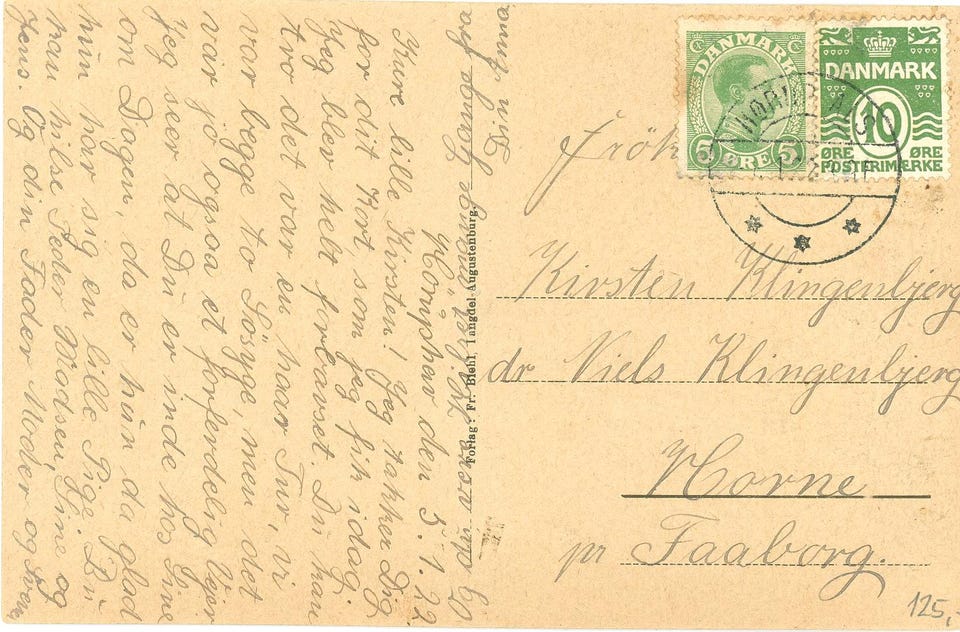 Höruphav den 5.1.22
Kære lille Kirsten! Jeg takker Dig
for dit Kort som jeg fik idag.
Jeg blev helt forbavset. Du kan
tro det var en haar Tur, vi
var begge to Sösyge, men det
var jo ogsaa et forferdelig Vejr
Jeg seer at Du er inde hos Sine
om Dagen, da er hun da glad
hun har sig en lille Pige. Du
kan hilse Peder Madsen, Sine og
Jens. Og din Fader Moder og Sven,
og du være
af
Din
Forlag: Fr. Biehl, Langdel-Augustenburg.
DANMARK
5 ØRE 5
DANMARK
10
ØRE ØRE
POSTFRIMÆRKE
HØRUP ALS
Frök
Kirsten Klingenbjerg
dr Niels Klingenbjerg
Horne
pr Faaborg.
125,-